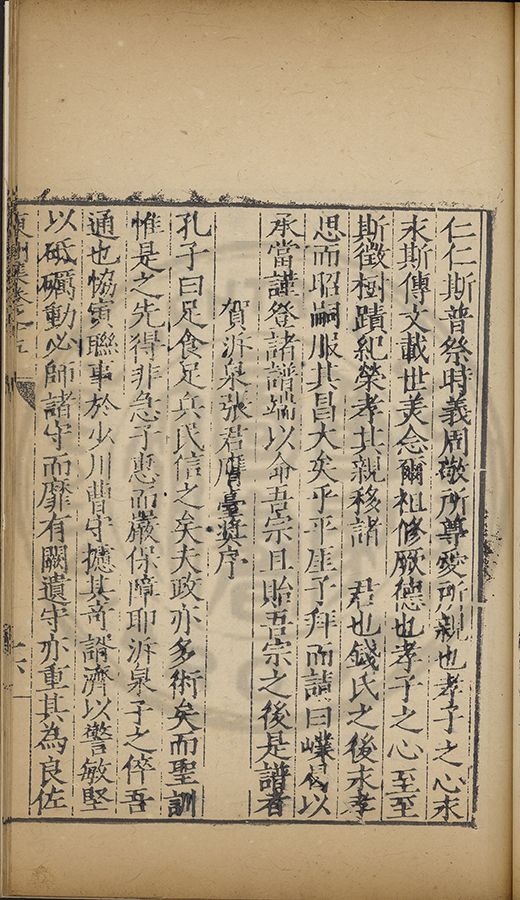 仁仁斯普祭時義周敬所尊愛所親也孝子之心永
永斯傳文載世美念爾祖修厥德也孝子之心至至
斯徵樹蹟紀榮孝其親移諸 君也錢氏之後永孝
思而昭嗣服其昌大矣乎平崖子拜而請曰㠔以
承當謹登諸譜端以命吾宗且貽吾宗之後是譜者
賀泝泉張君膺臺奬序
孔子曰足食足兵民信之矣夫政亦多術矣而聖訓
惟是之先得非急予惠而嚴保障耶泝泉子之倅吾
通也協寅聯事於少川曹守攄其奇謂濟以警敏堅
以砥礪動必師諸守而靡有闕遺守亦重其為良佐
卷之五
十六